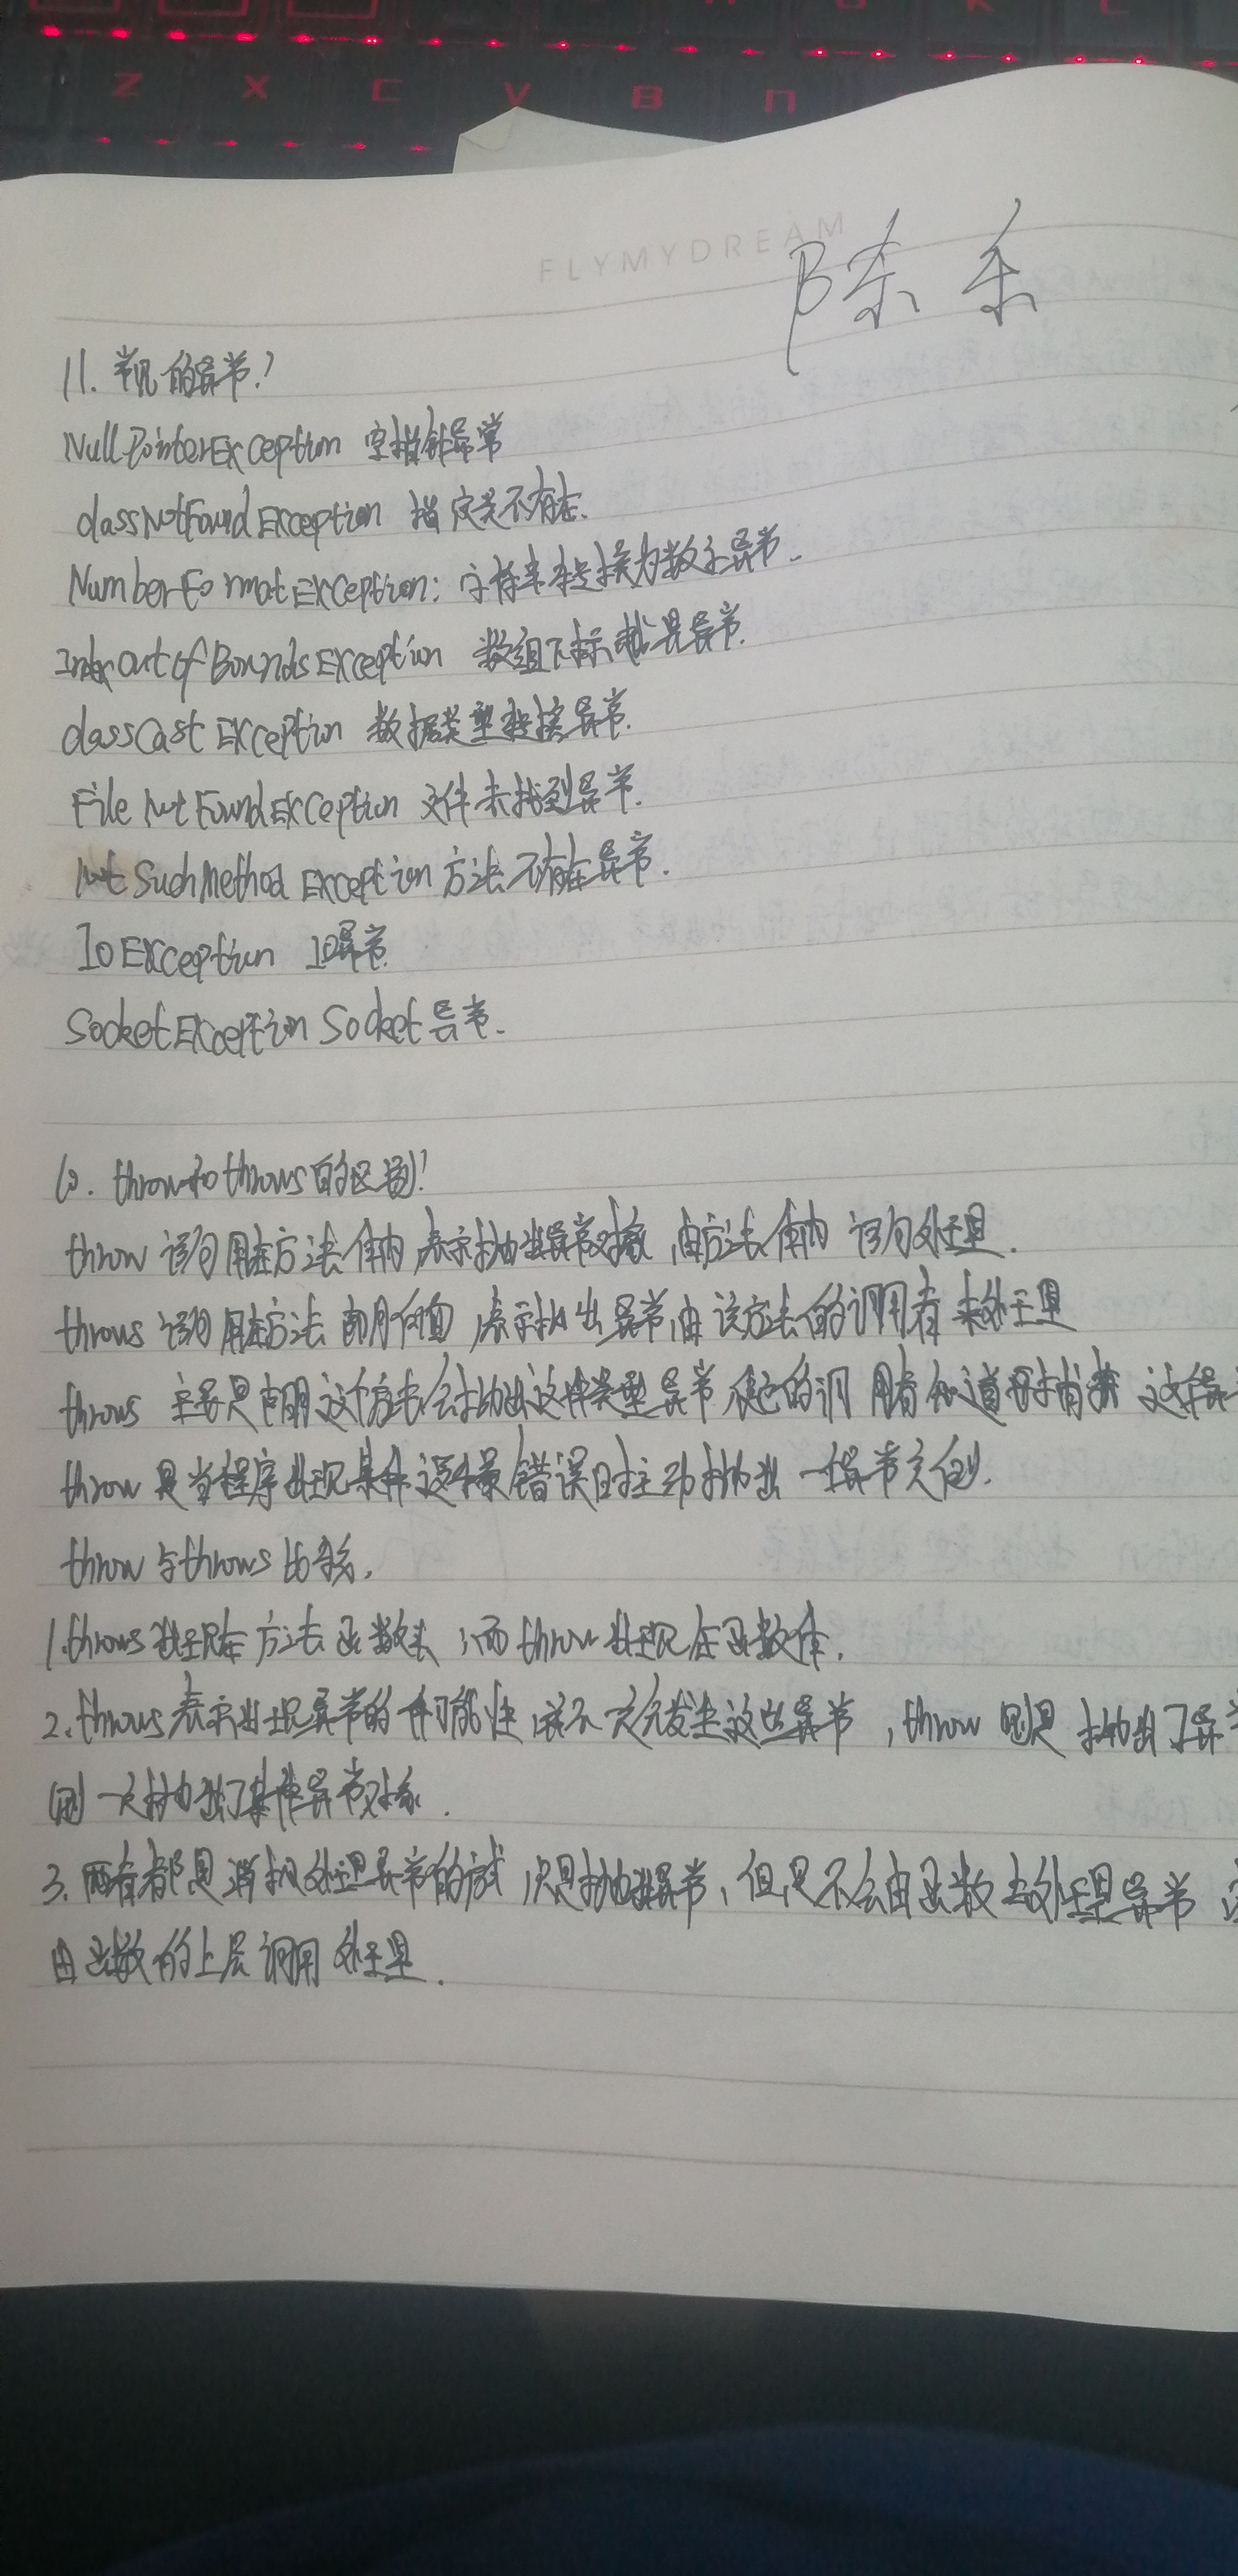 Z X C V B N
FLYMYDREAM
陈
11. 常见的异常?
NullPointerException 空指针异常
classNotFoundException 指定类不存在.
NumberFormatException: 字符串转换为数字异常.
IndexOutOfBoundsException 数组下标越界异常.
classCastException 数据类型转换异常.
FileNotFoundException 文件未找到异常.
NotSuchMethodException 方法不存在异常.
IoException IO异常.
SocketException Socket异常.
throw和throws的区别?
throw 语句用在方法体内,表示抛出异常对象,由方法体内 语句处理.
throws 语句用在方法声明后面,表示抛出异常,由该方法的调用者来处理
throws 主要是声明这个方法会抛出这种类型异常,使它的调用者知道要捕获这个异
throw 是当程序出现某种逻辑错误时主动抛出一种异常类型.
throw与throws比较.
1.throws出现在方法函数头;而throw出现在函数体.
2.throws表示出现异常的一种可能性,并不一定会发生这些异常,throw则是抛出了异常
则一定抛出了某种异常对象.
3.两者都是消极处理异常的方式,只是抛出异常,但是不会由函数去处理异常,
由函数的上层调用处理.